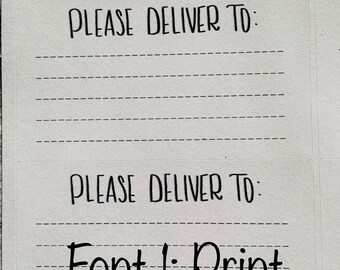 PLEASE DELIVER TO:
PLEASE DELIVER TO:
Font 1: Print